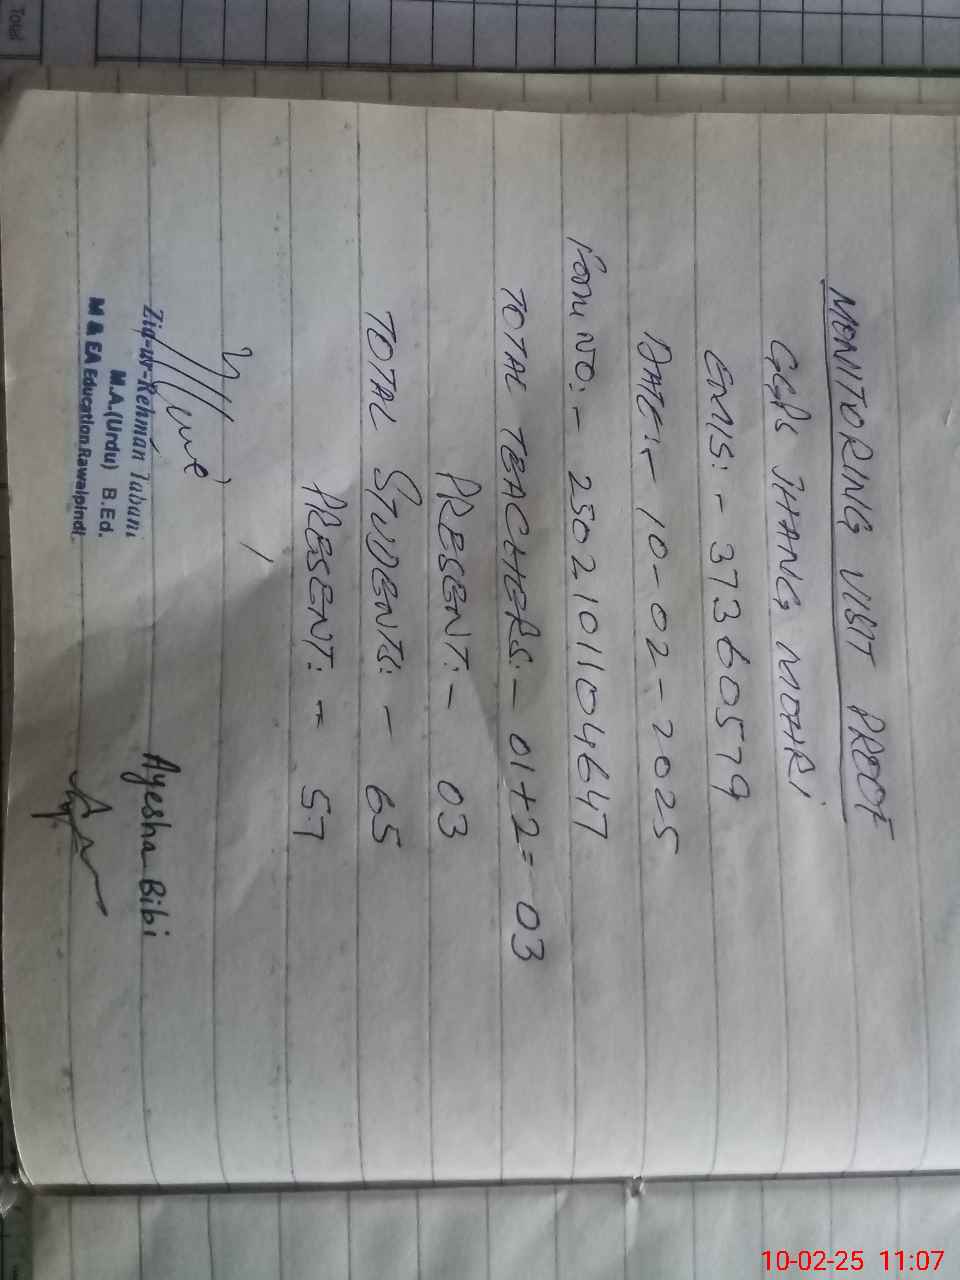 MONITORING VISIT PROOF
GGPS JHANG MOHRI
EMIS:- 37360579
DATE:- 10-02-2025
Form NO:- 250210110104647
TOTAL TEACHERS:- 01+2= 03
PRESENT:- 03
TOTAL STUDENTS:- 65
PRESENT:- 57
Zia-ur-Rehman Tabani
M.A.(Urdu) B.Ed.
M & EA Education.Rawalpindi.
Ayesha Bibi
Total
10-02-25 11:07